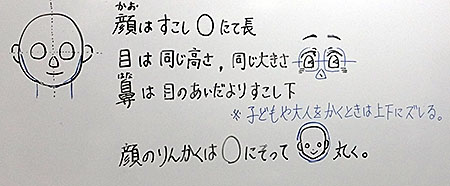 かお
顔はすこし〇にて長
目は同じ高さ,同じ大きさ
鼻は目のあいだよりすこし下
※子どもや大人をかくときは上下にズレる。
顔のりんかくは〇にそって丸く。